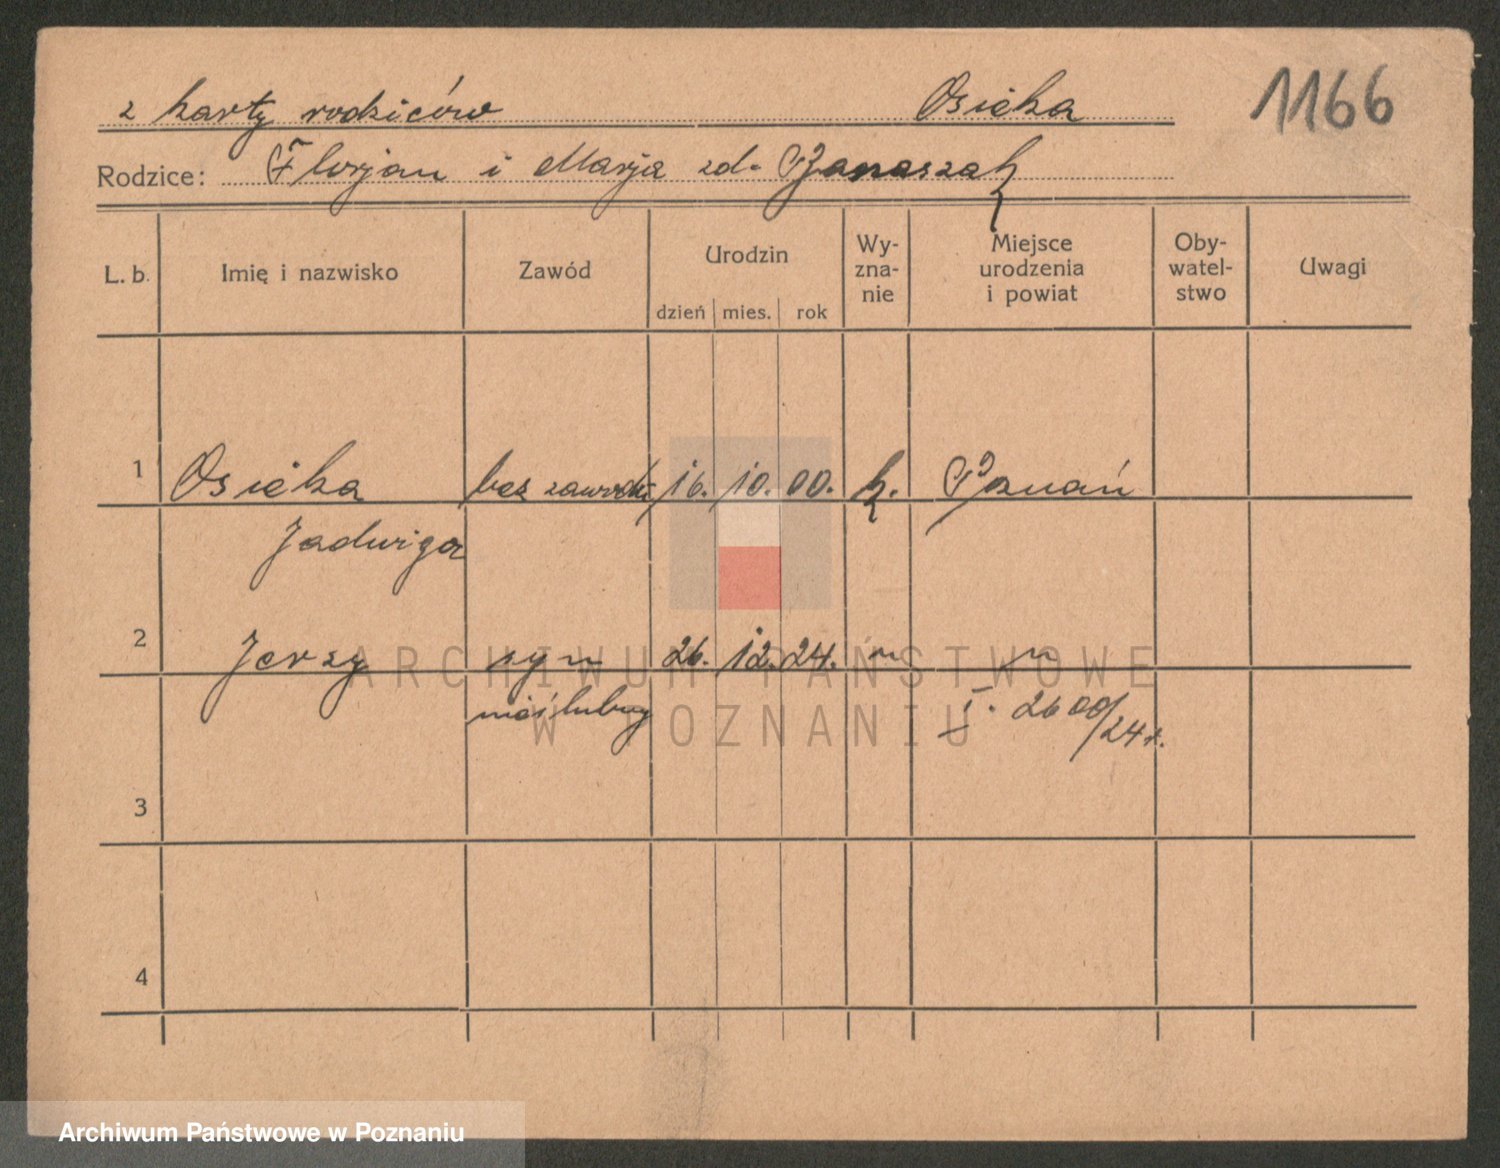 z karty rodziców Osieka 1166
Rodzice: Florjan i Marja zd. Banaszak
L. b. Imię i nazwisko Zawód Urodzin dzień mies. rok Wy-zna-nie Miejsce urodzenia i powiat Oby-watel-stwo Uwagi
1 Osieka bez zawodu 16. 10. 00. k. Poznań
Jadwiga
2 Jerzy syn 26. 12. 24. " "
nieślubny I. 2600/24 r.
3
4
ARCHIWUM PAŃSTWOWE
W POZNANIU
Archiwum Państwowe w Poznaniu